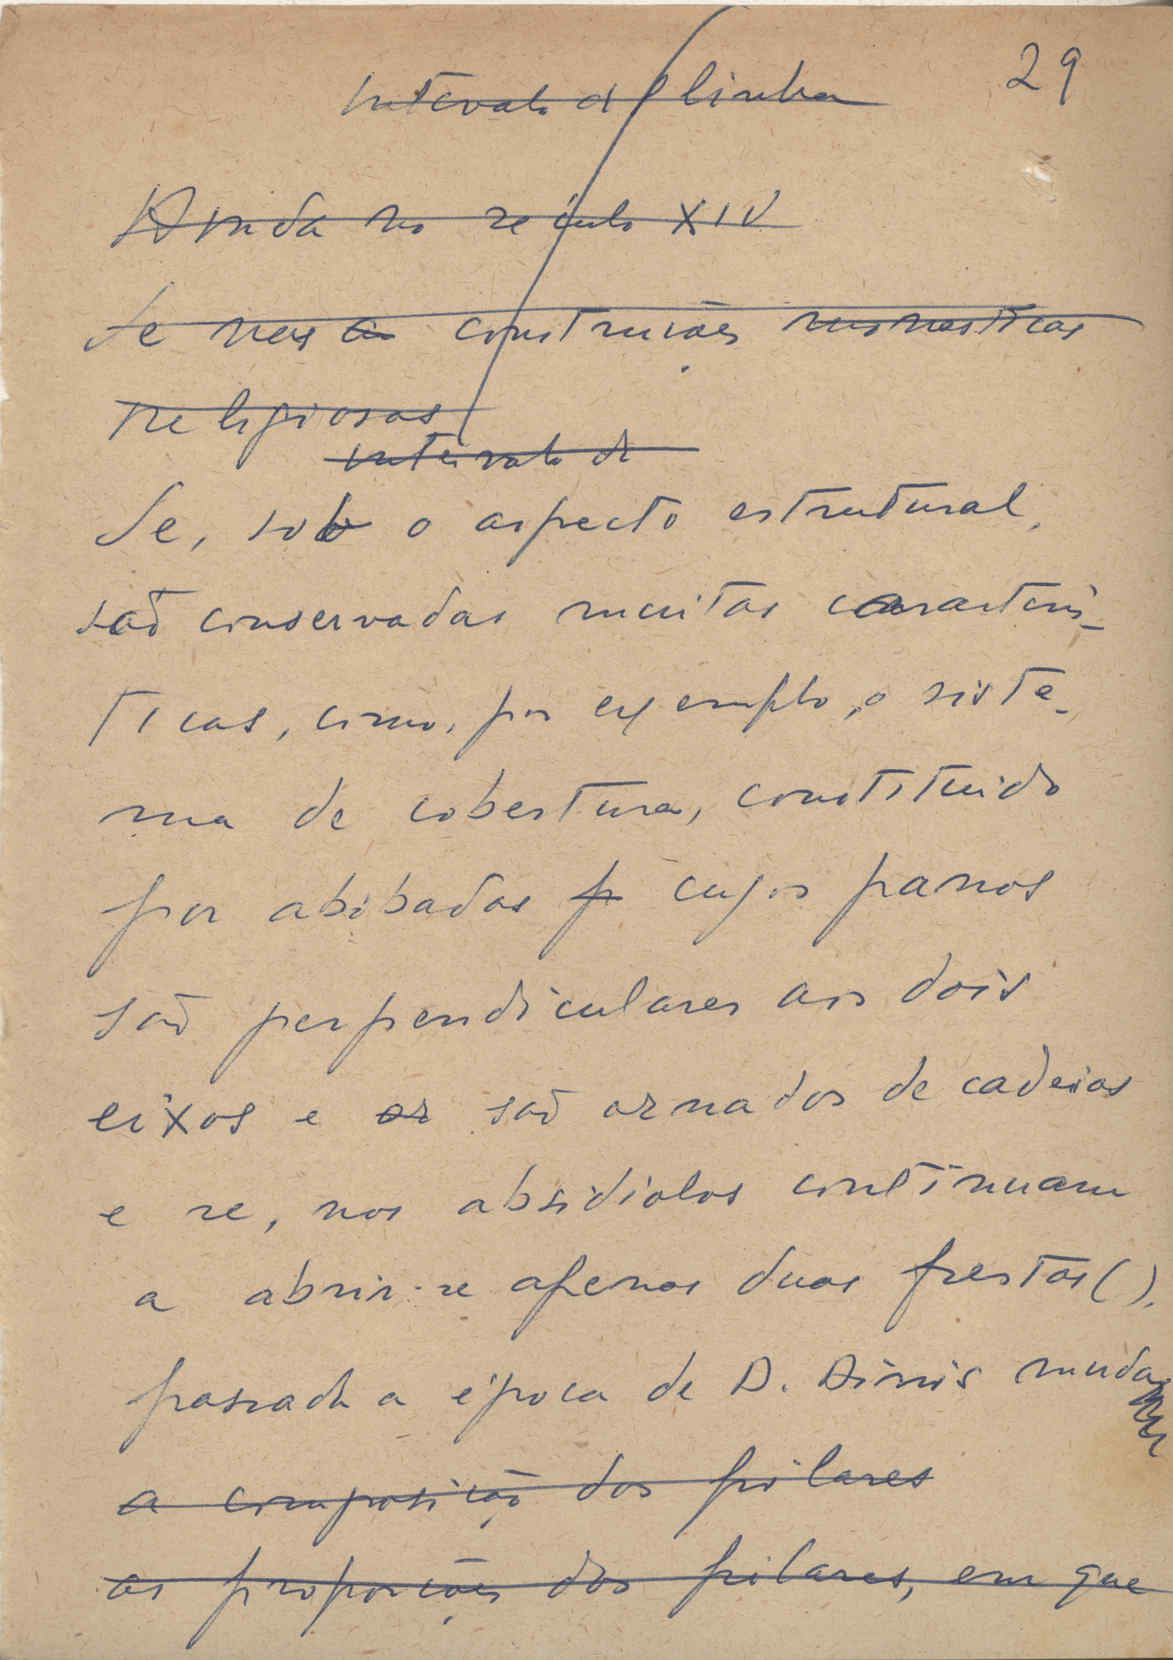 29
Intervalo d linha
Ainda no século XIV
Se nas construções monasticas
religiosas
intervalo de
Se, sob o aspecto estrutural,
são conservadas muitas caracterís-
ticas, como, por exemplo, o siste-
ma de cobertura, constituido
por abóbadas p cujos panos
são perpendiculares aos dois
eixos e or são ornados de cadeias
e se, nos absidiolos continuam
a abrir-se apenas duas frestas ( ).
passada a época de D. Dinis muda
a composição dos pilares
as proporções dos pilares, em que